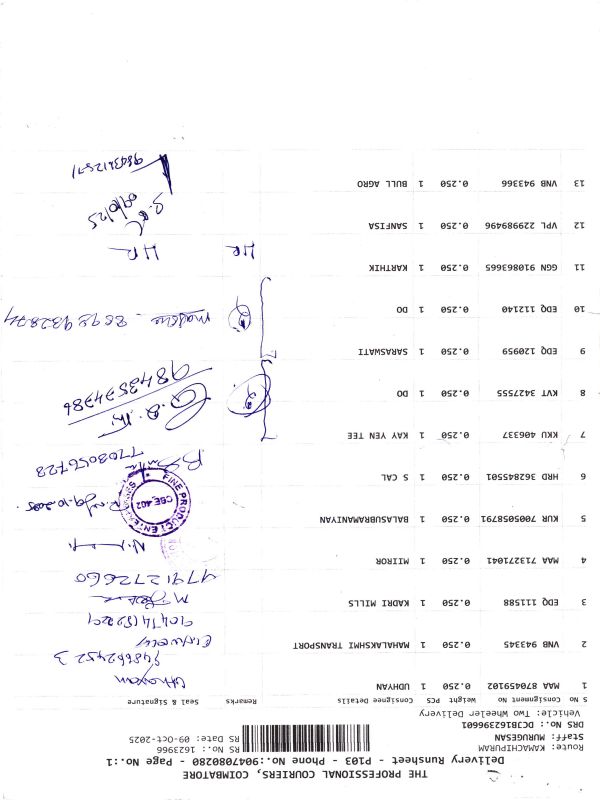 THE PROFESSIONAL COURIERS, COIMBATORE
Delivery Runsheet - P103 - Phone No.:9047080280 - Page No.:1
Route: KAMACHIPURAM
Staff: MURUGESAN
DRS No.: DCJB162396601
Vehicle: Two Wheeler Delivery
RS No.: 1623966
RS Date: 09-Oct-2025
S No Consignment No Weight PCS Consignee Details Remarks Seal & Signature
1 MAA 870459102 0.250 1 UDHYAN
2 VNB 943345 0.250 1 MAHALAKSHMI TRANSPORT 9486624523
3 EDQ 111588 0.250 1 KADRI MILLS
4 MAA 713271041 0.250 1 MIIROR
5 KUR 7005058791 0.250 1 BALASUBRAMANIYAN
FINE PRODUCT ENTERPRISES
CBE.402
6 HRD 362845501 0.250 1 S CAL S 7708056728
7 KKU 406337 0.250 1 KAY YEN TEE
8 KVT 3427555 0.250 1 DO 9843574386
9 EDQ 120959 0.250 1 SARASWATI
10 EDQ 112140 0.250 1 DO
11 GGN 9108063665 0.250 1 KARTHIK HR HR
12 VPL 229989496 0.250 1 SANFISA
13 VNB 943366 0.250 1 BULL AGRO